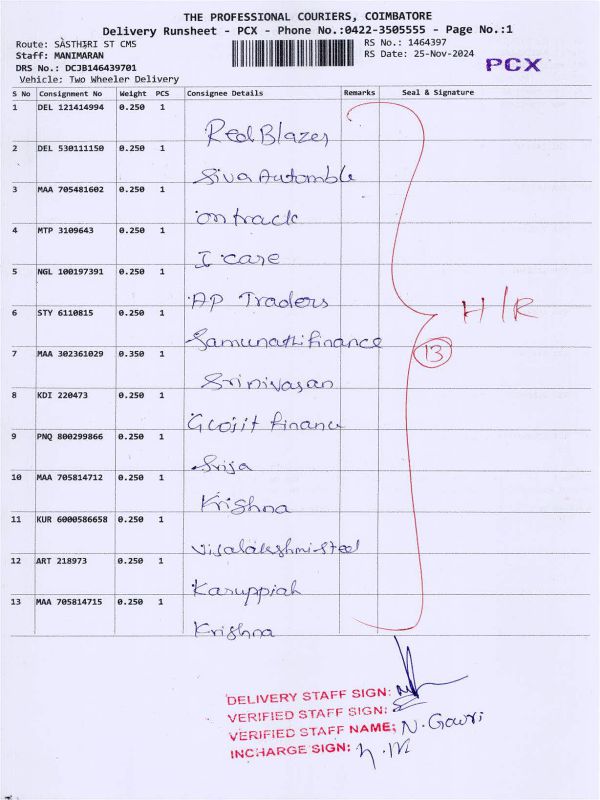 THE PROFESSIONAL COURIERS, COIMBATORE
Delivery Runsheet - PCX - Phone No.:0422-3505555 - Page No.:1
Route: SASTHIRI ST CMS RS No.: 1464397
Staff: MANIMARAN RS Date: 25-Nov-2024
DRS No.: DCJB146439701 PCX
Vehicle: Two Wheeler Delivery
S No Consignment No Weight PCS Consignee Details Remarks Seal & Signature
1 DEL 121414994 0.250 1
Red Blazer
2 DEL 530111150 0.250 1
Siva Automble
3 MAA 705481602 0.250 1
ontrack
4 MTP 3109643 0.250 1
I care
5 NGL 100197391 0.250 1
AP Traders
6 STY 6110815 0.250 1
H/R
Samunathi finance
13
7 MAA 302361029 0.350 1
Srinivasan
8 KDI 220473 0.250 1
Geojit finance
9 PNQ 800299866 0.250 1
Srija
10 MAA 705814712 0.250 1
Krishna
11 KUR 6000586658 0.250 1
Visalakshmi steel
12 ART 218973 0.250 1
Karuppiah
13 MAA 705814715 0.250 1
Krishna
DELIVERY STAFF SIGN:
VERIFIED STAFF SIGN:
VERIFIED STAFF NAME: N. Gowri
INCHARGE SIGN: